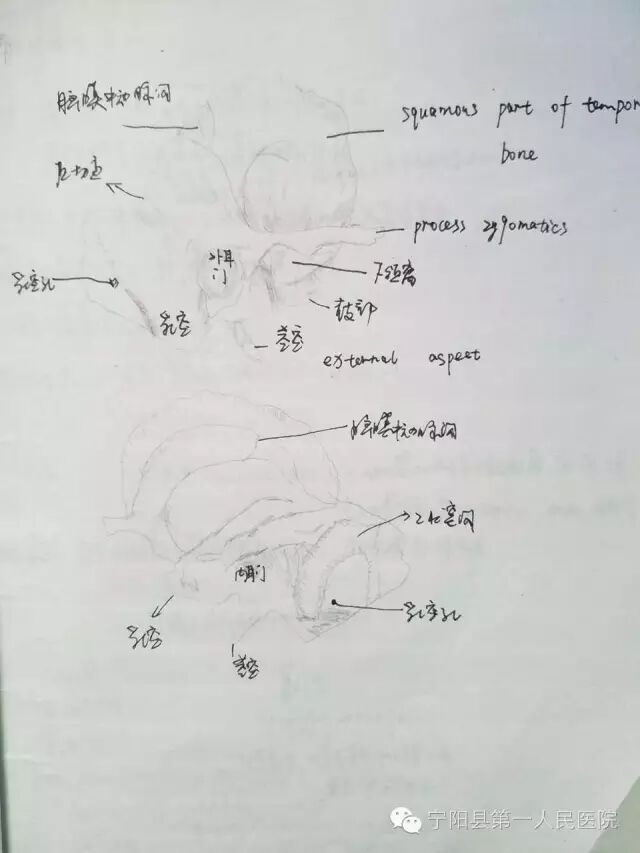 脑膜中动脉沟
squamous part of tempor
bone
顶切迹
process zygomatics
外耳
门
下颌窝
乳突孔
鼓部
乳突
茎突
external aspect
脑膜中动脉沟
乙状窦沟
内耳门
乳突孔
乳突
茎突
宁阳县第一人民医院